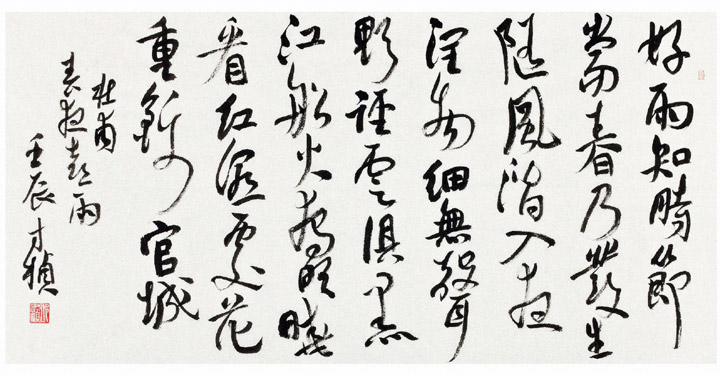 好雨知時節
當春乃發生
隨風潛入夜
潤物細無聲
野徑雲俱黑
江船火獨明曉
看紅濕處花
重錦官城
杜甫
春夜喜雨
壬辰才